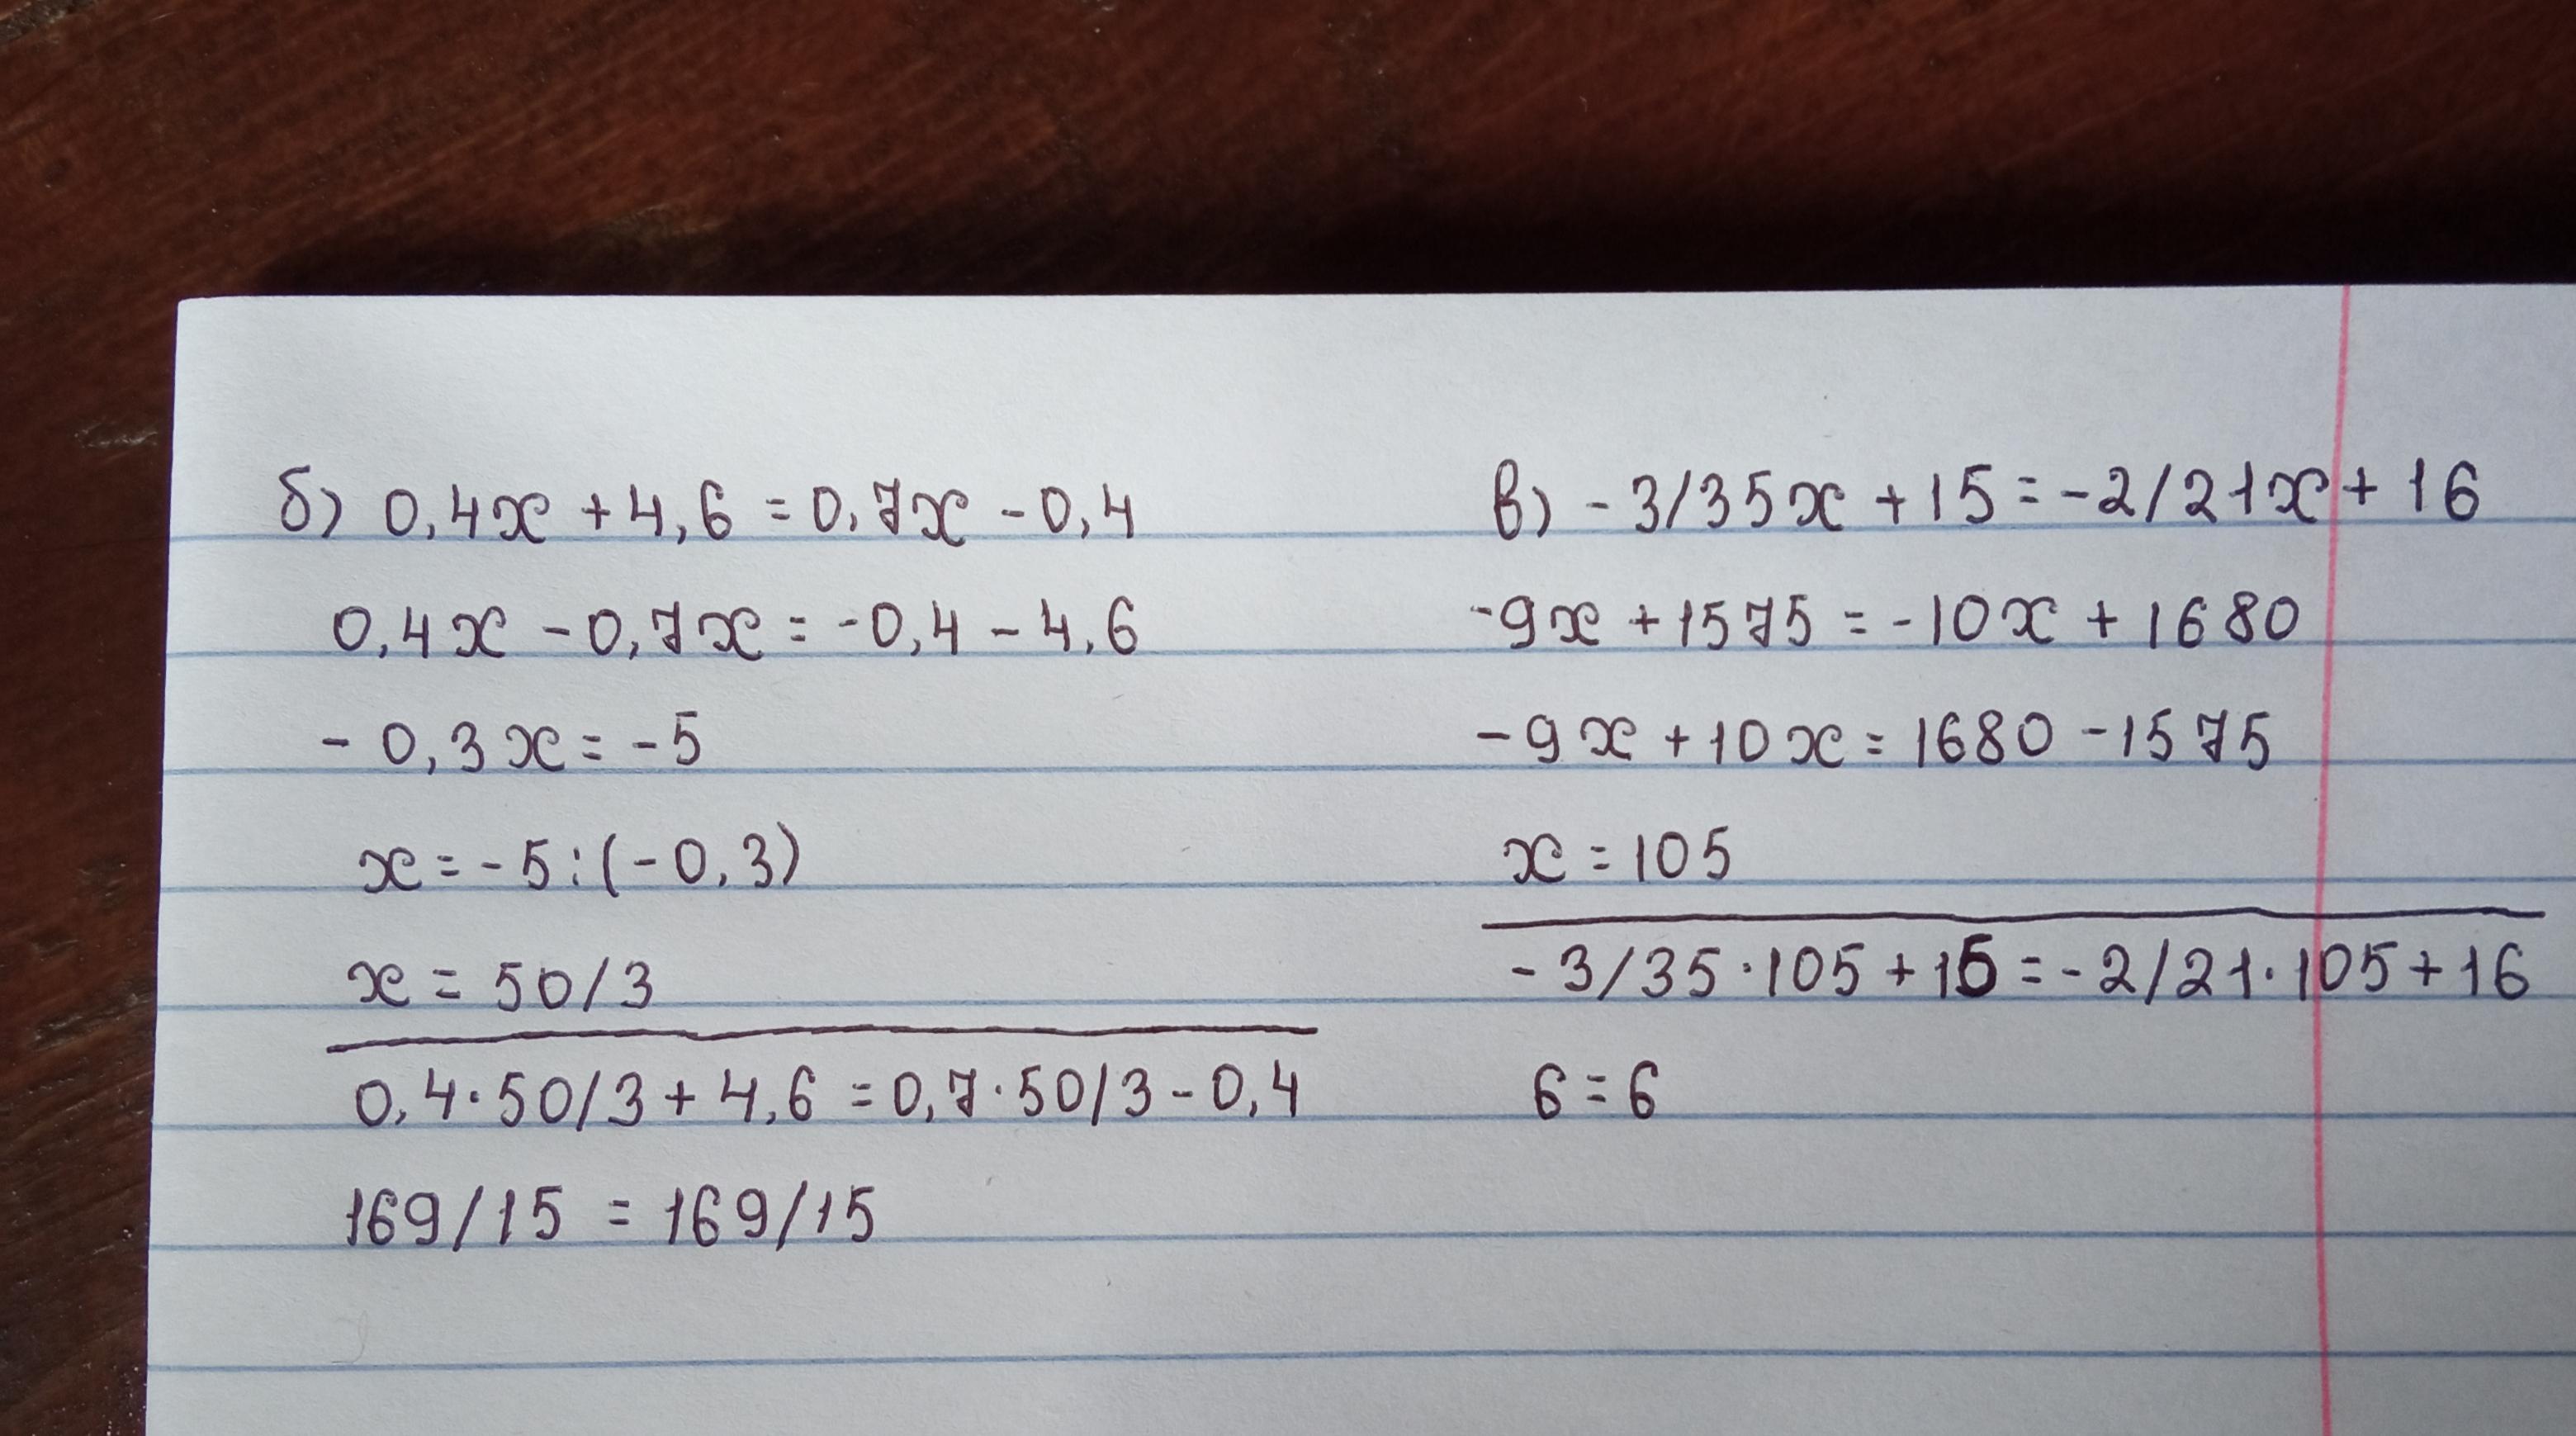 б) 0,4x + 4,6 = 0,7x - 0,4
0,4x - 0,7x = -0,4 - 4,6
- 0,3x = -5
x = -5 : (-0,3)
x = 50/3
0,4 · 50/3 + 4,6 = 0,7 · 50/3 - 0,4
169/15 = 169/15
в) - 3/35x + 15 = -2/21x + 16
-9x + 1575 = -10x + 1680
-9x + 10x = 1680 - 1575
x = 105
- 3/35 · 105 + 15 = -2/21 · 105 + 16
6 = 6